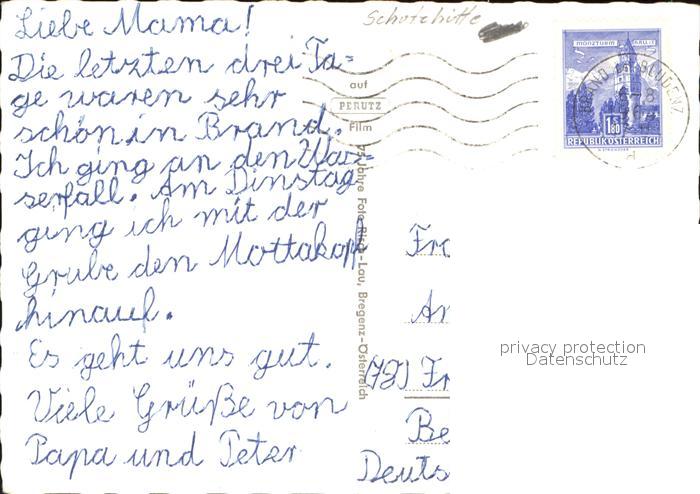 Schutzhütte
Liebe Mama!
Die letzten drei Ta=
ge waren sehr
schön in Brand.
Ich ging an den Was=
serfall. Am Dinstag
ging ich mit der
Grube den Mottakopf
hinauf.
Es geht uns gut.
Viele Grüße von
Papa und Peter
auf
PERUTZ
Film
MÜNZTURM HALL I.T.
1.80
REPUBLIK ÖSTERREICH
BRAND BEI BLUDENZ
Jahre Foto Risch-Lau, Bregenz-Österreich
Fr
An
Fr
Be
Deuts
privacy protection
Datenschutz